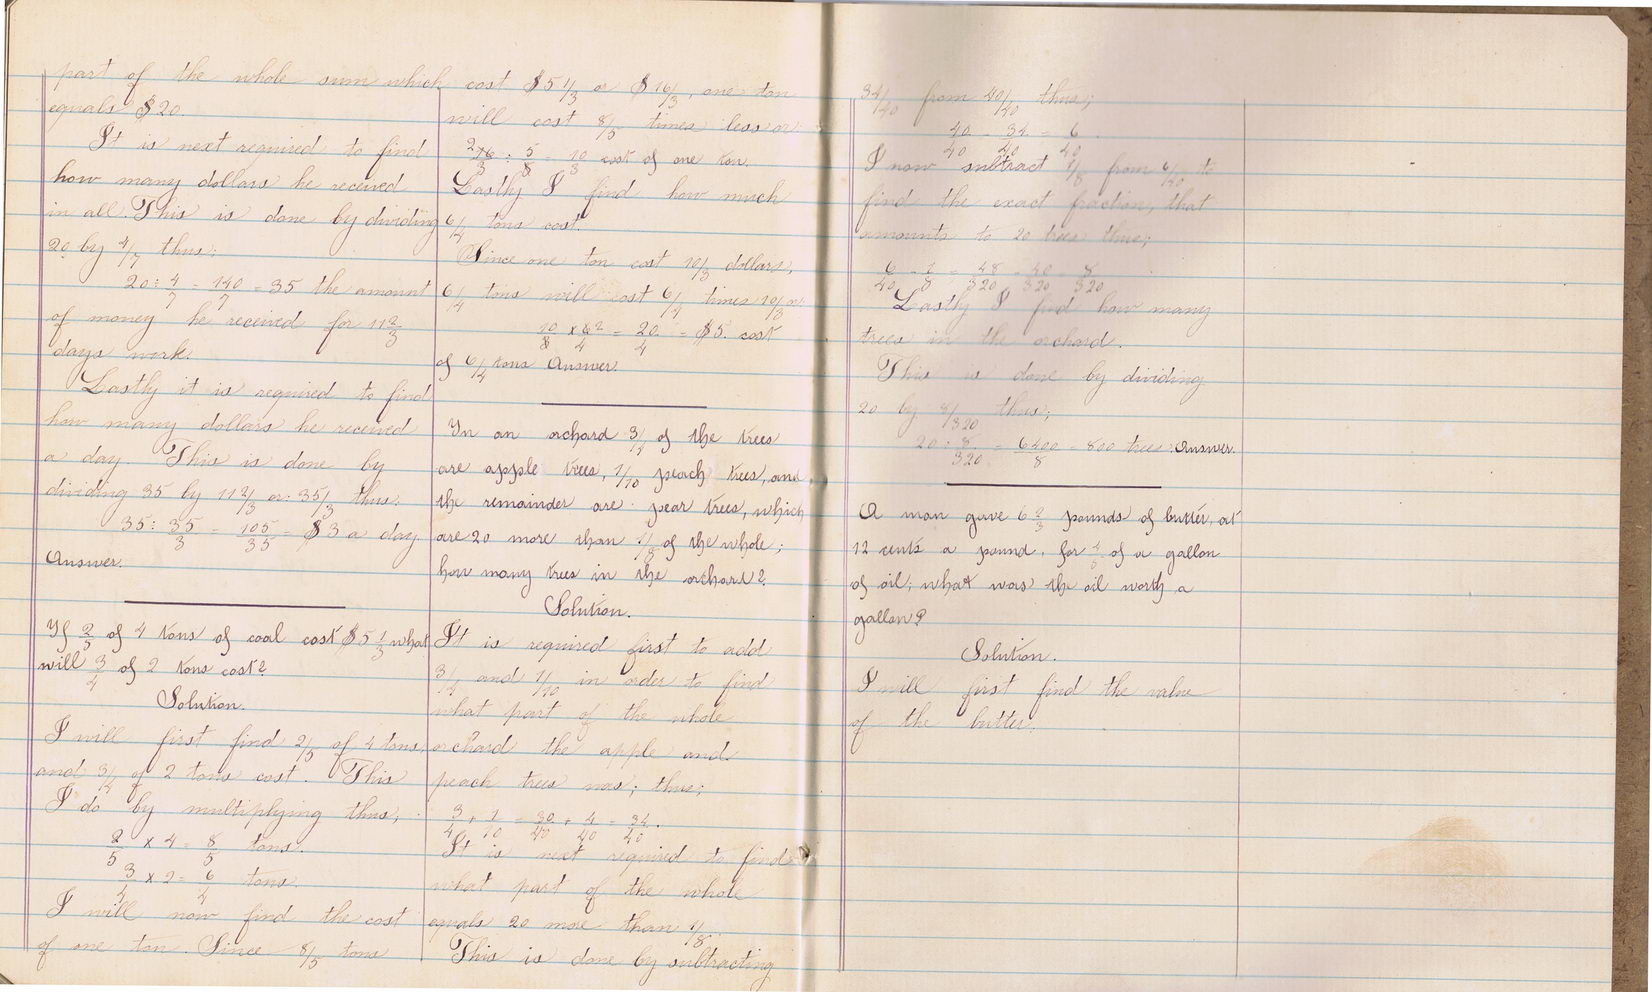 part of the whole sum which
equals $20.
It is next required to find
how many dollars he received
in all. This is done by dividing
20 by 4/7 thus:
20 : 4/7 = 140/7 = 35 the amount
of money he received for 11 2/3
days work.
Lastly it is required to find
how many dollars he received
a day. This is done by
dividing 35 by 11 2/3 or 35/3 thus.
35 : 35/3 = 105/35 = $3 a day
Answer.
If 2/5 of 4 tons of coal cost $5 1/3 what
will 3/4 of 2 tons cost?
Solution.
I will first find 2/5 of 4 tons,
and 3/4 of 2 tons cost. This
I do by multiplying thus;
2/5 x 4 = 8/5 tons.
3/4 x 2 = 6/4 tons.
I will now find the cost
of one ton. Since 8/5 tons
cost $5 1/3 or $16/3, one ton
will cost 8/5 times less or
16/3 : 5/8 = 10/3 cost of one ton.
Lastly I find how much
6/4 tons cost.
Since one ton cost 10/3 dollars,
6/4 tons will cost 6/4 times 10/3 or
10/3 x 6/4 = 20/4 = $5. cost
of 6/4 tons Answer.
In an orchard 3/4 of the trees
are apple trees, 1/10 peach trees, and
the remainder are pear trees, which
are 20 more than 1/8 of the whole;
how many trees in the orchard?
Solution.
It is required first to add
3/4 and 1/10 in order to find
what part of the whole
orchard the apple and
peach trees was; thus;
3/4 + 1/10 = 30/40 + 4/40 = 34/40.
It is next required to find
what part of the whole
equals 20 more than 1/8.
This is done by subtracting
34/40 from 40/40 thus;
40/40 - 34/40 = 6/40.
I now subtract 1/8 from 6/40 to
find the exact fraction, that
amounts to 20 trees thus;
6/40 - 1/8 = 48/320 - 40/320 = 8/320
Lastly I find how many
trees in the orchard.
This is done by dividing
20 by 8/320 thus;
20 : 8/320 = 6400/8 = 800 trees. Answer.
A man gave 6 2/3 pounds of butter, at
12 cents a pound, for of a gallon
of oil; what was the oil worth a
gallon?
Solution.
I will first find the value
of the butter.